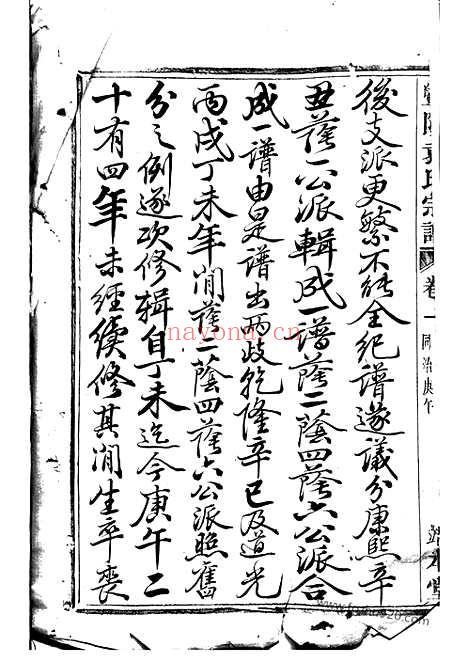 後支派更繁不能全纪譜遂議分康熙辛
丑蔭一公派輯成一譜蔭二蔭四蔭六公派合
成一譜由是譜出兩歧乾隆辛巳及道光
丙戌丁未年間蔭二蔭四蔭六公派照舊
分之例遂次修輯自丁未迄今庚午二
十有四年未經續修其間生卒喪
袁氏宗譜
卷一
同治庚午
堂
nayona.cn